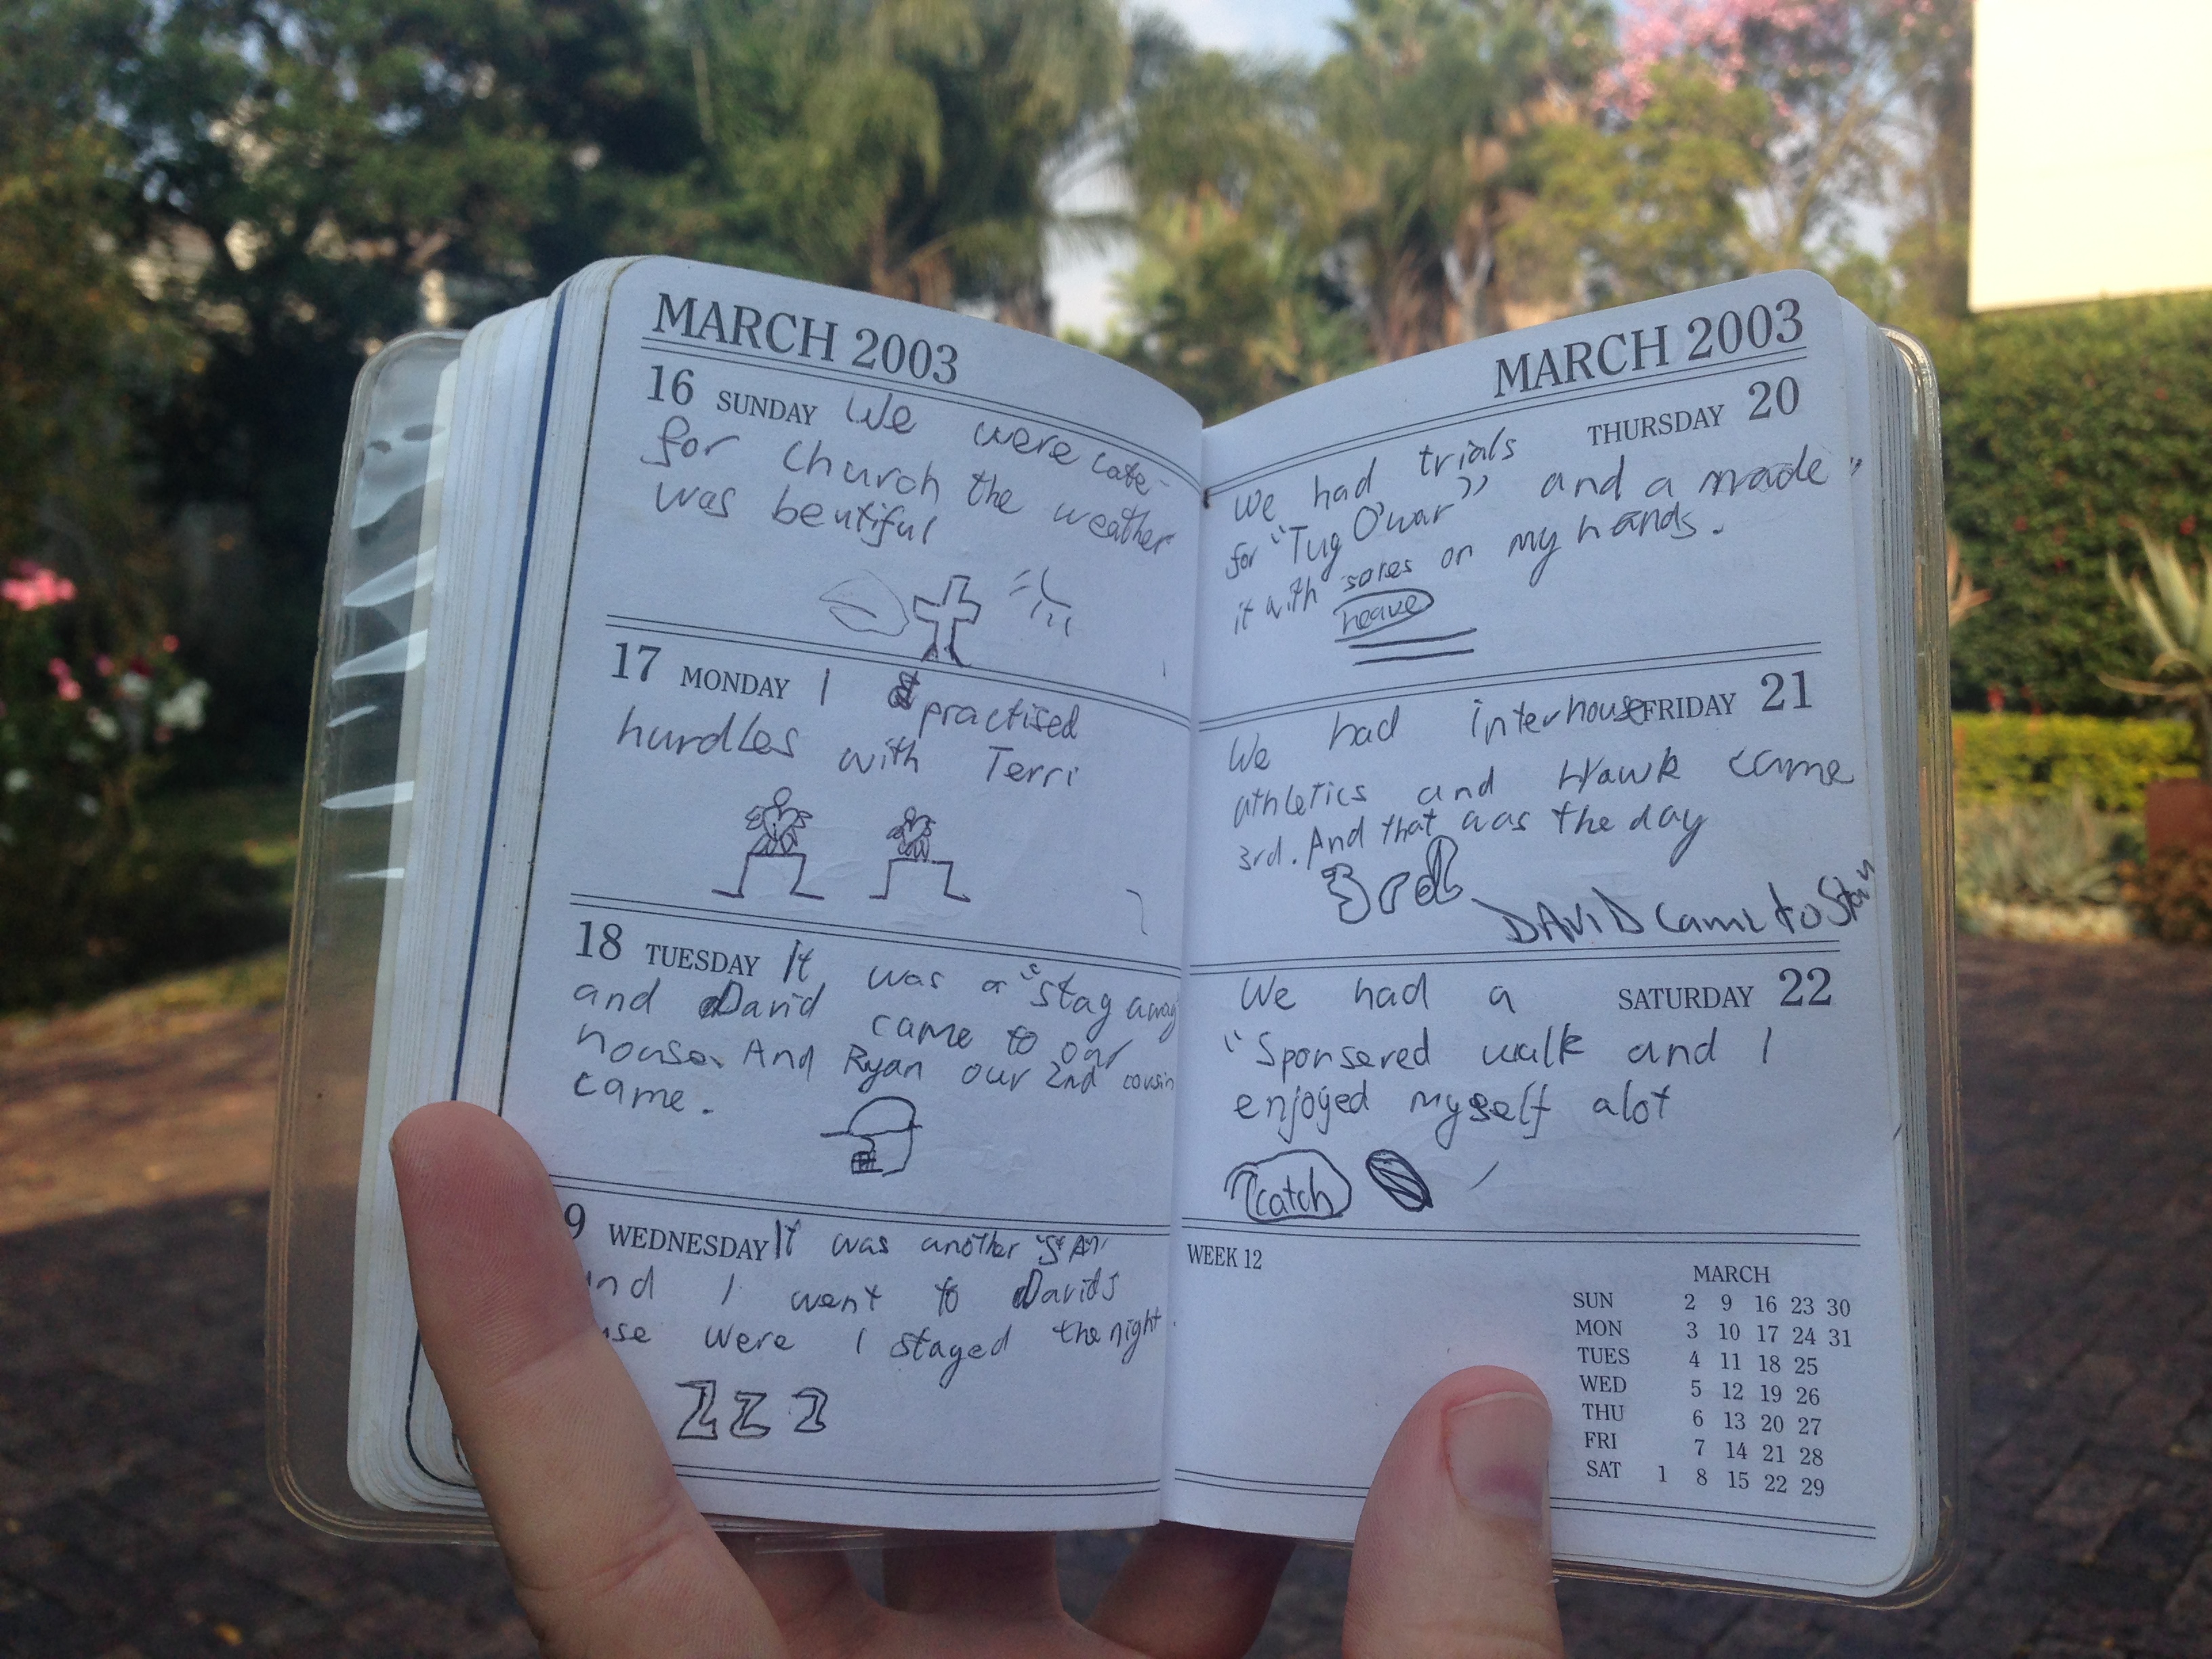 MARCH 2003
16 SUNDAY We were late
for church the weather
was beutiful
17 MONDAY I practised
hurdles with Terri
18 TUESDAY It was a "stag away
and David came to our
house. And Ryan our 2nd cousin
came.
9 WEDNESDAY It was another
and I went to Davids
use were I stayed the night.
ZZZ
MARCH 2003
THURSDAY 20
We had trials
for "Tug O'war" and a made
it with sores on my hands.
heave
FRIDAY 21
We had interhouse
athletics and Hawk came
3rd. And that was the day
3rd
DAViD came to Stay
We had a SATURDAY 22
"Sponsered walk and I
enjoyed myself alot
catch
WEEK 12
MARCH
SUN 2 9 16 23 30
MON 3 10 17 24 31
TUES 4 11 18 25
WED 5 12 19 26
THU 6 13 20 27
FRI 7 14 21 28
SAT 1 8 15 22 29